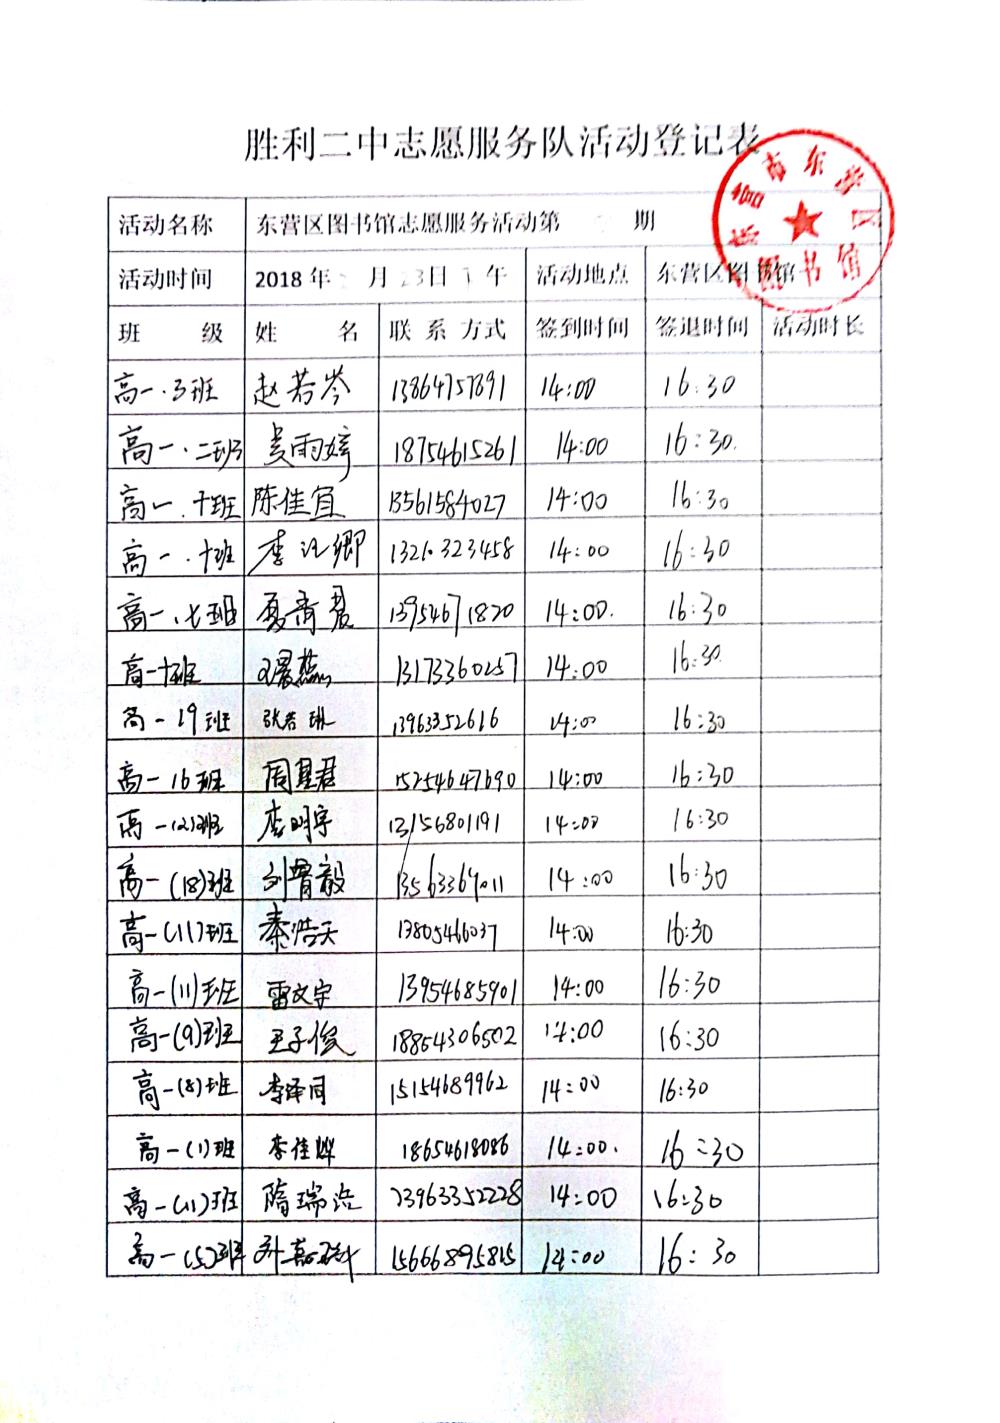 胜利二中志愿服务队活动登记表
东营市东营区图书馆
活动名称 东营区图书馆志愿服务活动第 期
活动时间 2018年 月23日 午 活动地点 东营区图书馆
班 级 姓 名 联 系 方式 签到时间 签退时间 活动时长
高一.3班 赵若岑 13864757891 14:00 16:30
高一.二班 雨婷 18754615261 14:00 16:30.
高一.十班 陈佳宜 13561584027 14:00 16:30
高一.十班 李 卿 14:00 16:30
高一.七班 君 13954671820 14:00. 16:30
高一十班 13173360257 14:00 16:30.
高一19班 张若琳 13963352616 14:00 16:30
高一16班 周星君 15254647690 14:00 16:30
高一(2)班 李明宇 13156801191 14:00 16:30
高一(18)班 刘晋毅 13563369011 14:00 16:30
高一(11)班 秦浩天 13805466037 14:00 16:30
高一(11)班 雷文宇 13954685901 14:00 16:30
高一(9)班 王子俊 18854306502 14:00 16:30
高一(8)班 李泽同 15154689962 14:00 16:30
高一(1)班 李佳烨 18654618086 14:00. 16:30
高一(11)班 隋瑞浩 13963352228 14:00 16:30
高一(5)班 15666895815 14:00 16:30